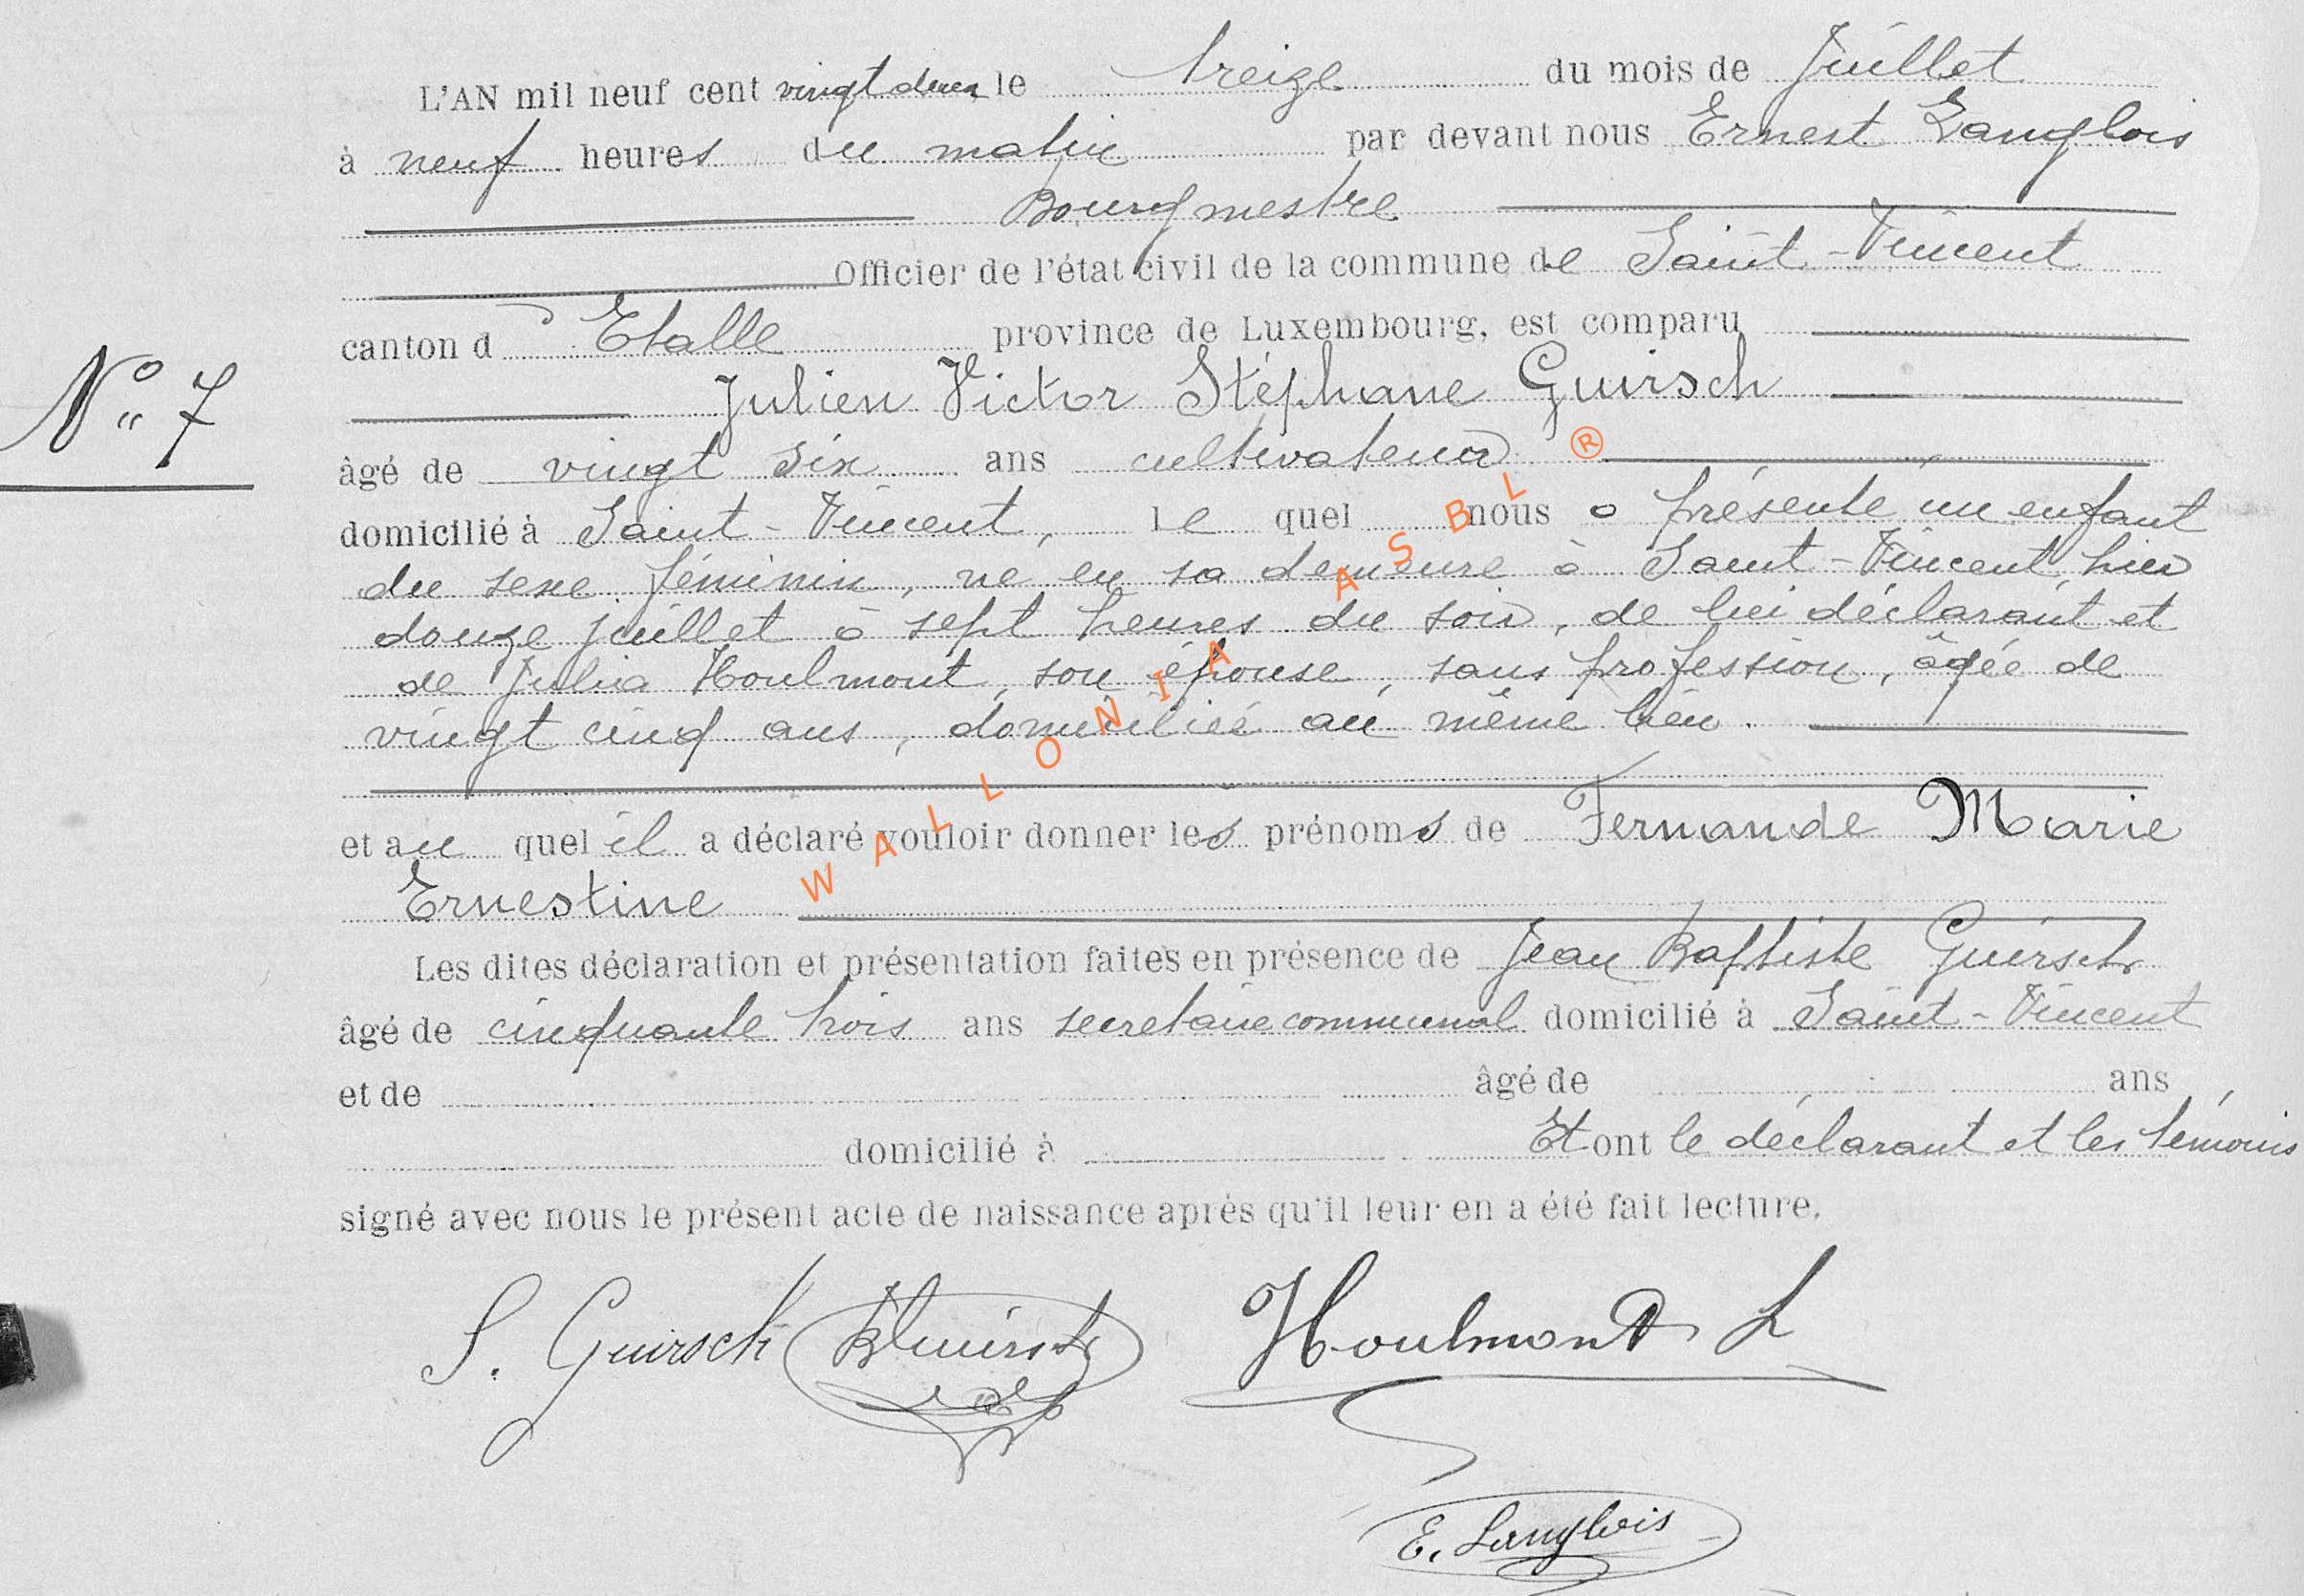 L'AN mil neuf cent vingt deux le treize du mois de Juillet
à neuf heures du matin par devant nous Ernest Langlois
Bourgmestre
Officier de l'état civil de la commune de Saint-Vincent
canton d'Etalle province de Luxembourg, est comparu
N° 7
Julien Victor Stéphane Guirsch
âgé de vingt six ans cultivateur ®
domicilié à Saint-Vincent, le quel nous a présenté un enfant
du sexe féminin, né en sa demeure à Saint-Vincent, hier
douze juillet à sept heures du soir, de lui déclarant et
de Julia Houlmont, son épouse, sans profession, âgée de
vingt cinq ans, domiciliée au même lieu.
et au quel il a déclaré vouloir donner les prénoms de Fernande Marie
Ernestine
WALLONIA ASBL
Les dites déclaration et présentation faites en présence de Jean Baptiste Guirsch
âgé de cinquante trois ans secrétaire communal domicilié à Saint-Vincent
et de âgé de ans
domicilié à Et ont le déclarant et les témoins
signé avec nous le présent acte de naissance après qu'il leur en a été fait lecture.
S. Guirsch Houlmont L
E. Langlois